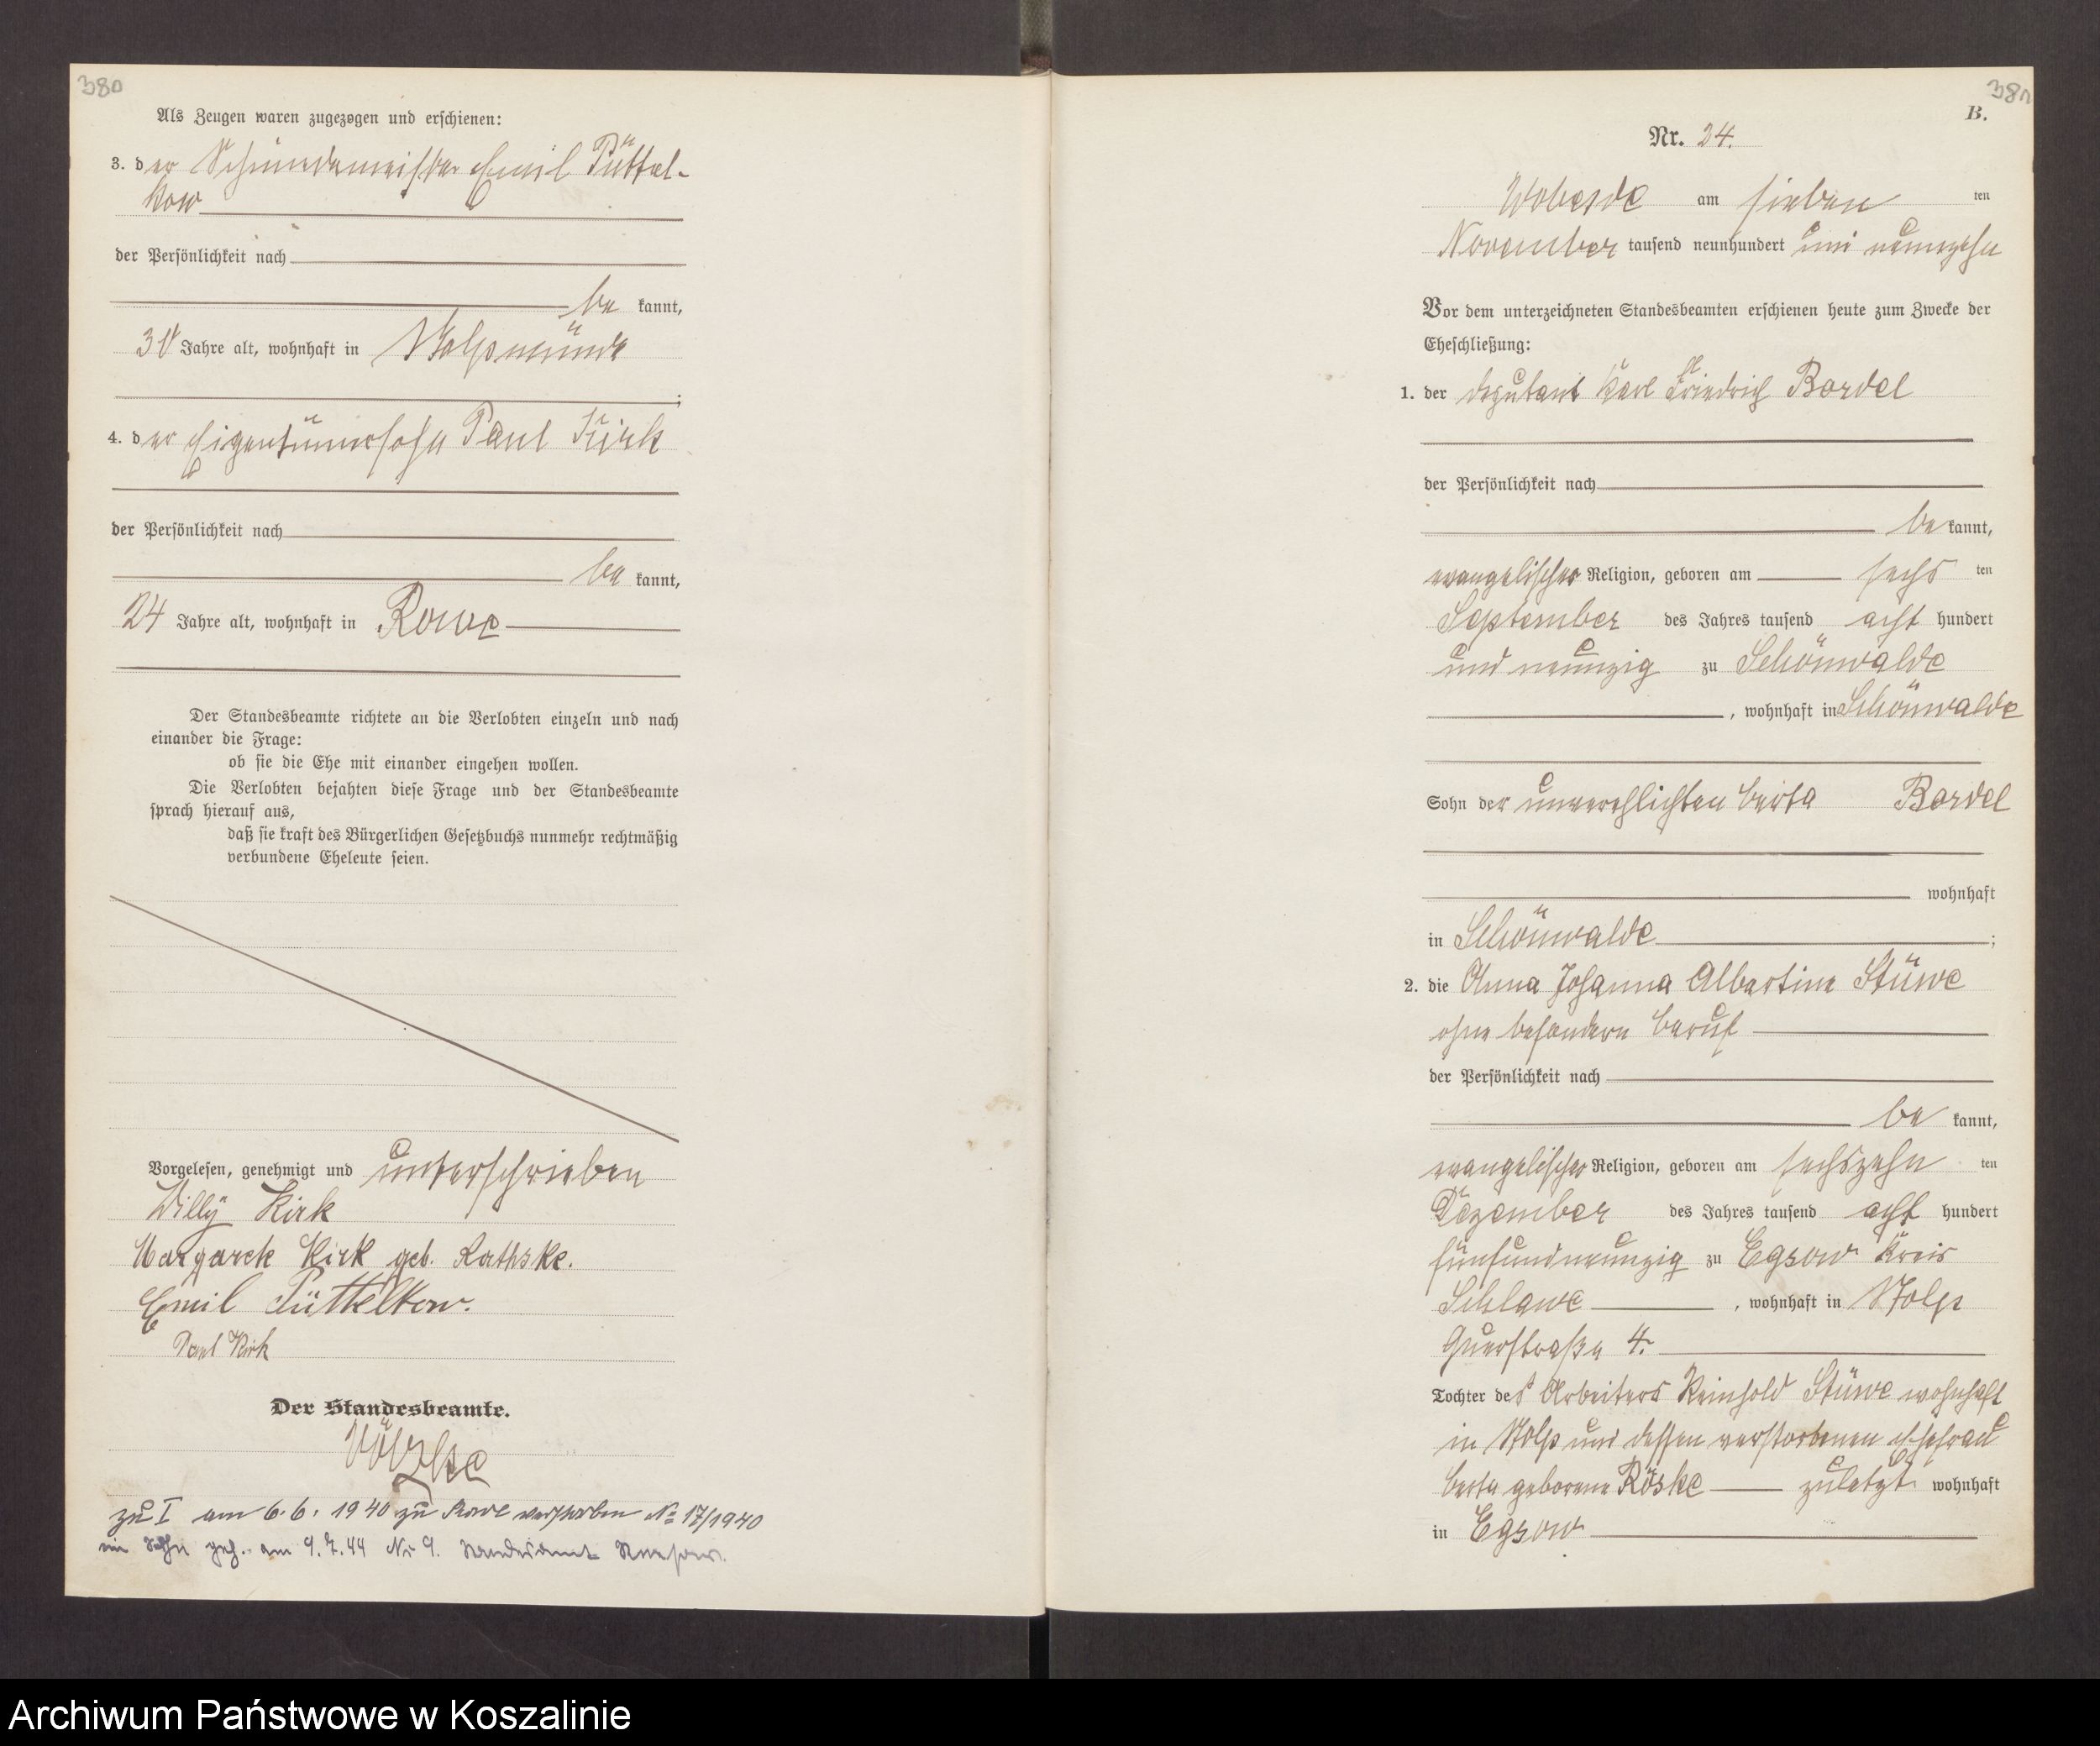 380
Als Zeugen waren zugezogen und erschienen:
3. der Schmiedemeister Emil Püttel-
kow
der Persönlichkeit nach
be kannt,
Jahre alt, wohnhaft in Stolpmünde
;
4. der Eigentümersohn Paul Kirk
der Persönlichkeit nach
be kannt,
24 Jahre alt, wohnhaft in Rowe
Der Standesbeamte richtete an die Verlobten einzeln und nach
einander die Frage:
ob sie die Ehe mit einander eingehen wollen.
Die Verlobten bejahten diese Frage und der Standesbeamte
sprach hierauf aus,
daß sie kraft des Bürgerlichen Gesetzbuchs nunmehr rechtmäßig
verbundene Eheleute seien.
Vorgelesen, genehmigt und unterschrieben
Willy Kirk
Margarete Kirk geb. Rathske.
Emil Püttelkow.
Paul Kirk
Der Standesbeamte.
zu I am 6.6.1940 zu Rowe verstorben № 17/1940
ein Sohn geh. am 9.7.44 Nr 9. Standesamt
381
B.
Nr. 24.
Wobesde am sieben ten
November tausend neunhundert und neunzehn
Vor dem unterzeichneten Standesbeamten erschienen heute zum Zwecke der
Eheschließung:
1. der Deputant Karl Friedrich Bardel
der Persönlichkeit nach
be kannt,
evangelischer Religion, geboren am sechs ten
September des Jahres tausend acht hundert
und neunzig zu Schönwalde
, wohnhaft in Schönwalde
Sohn der unverehlichten Berta Bardel
wohnhaft
in Schönwalde ;
2. die Anna Johanna Albertine Stüwe
ohne besondern Beruf
der Persönlichkeit nach
be kannt,
evangelischer Religion, geboren am sechszehn ten
Dezember des Jahres tausend acht hundert
fünfundneunzig zu Egsow Kreis
Schlawe , wohnhaft in Stolp
Querstraße 4.
Tochter des Arbeiters Reinhold Stüwe wohnhaft
in Stolp und dessen verstorbenen Ehefrau
Berta geborene Röske zuletzt wohnhaft
in Egsow
Archiwum Państwowe w Koszalinie